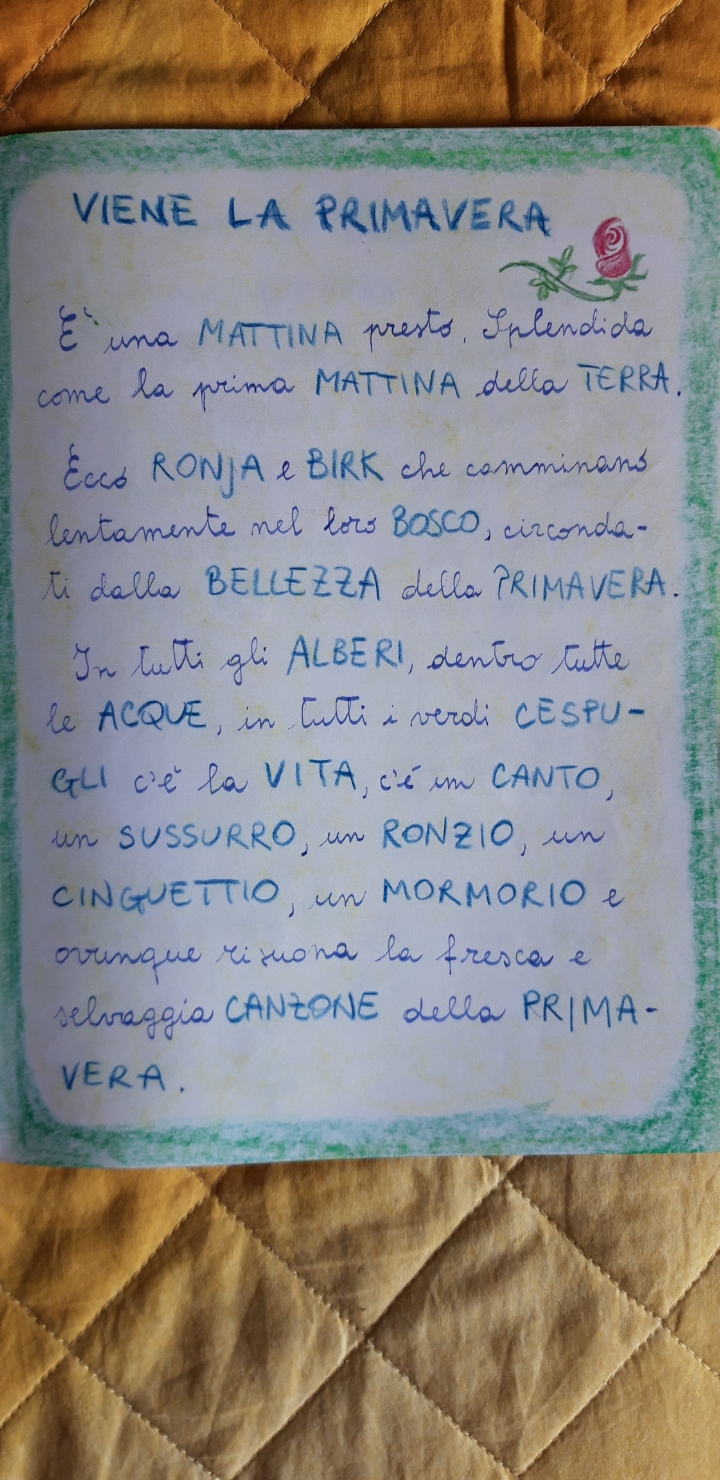 VIENE LA PRIMAVERA
E' una MATTINA presto. Splendida
come la prima MATTINA della TERRA.
Ecco RONJA e BIRK che camminano
lentamente nel loro BOSCO, circonda-
ti dalla BELLEZZA della PRIMAVERA.
In tutti gli ALBERI, dentro tutte
le ACQUE, in tutti i verdi CESPU-
GLI c'è la VITA, c'é un CANTO,
un SUSSURRO, un RONZIO, un
CINGUETTIO, un MORMORIO e
ovunque risuona la fresca e
selvaggia CANZONE della PRIMA-
VERA.